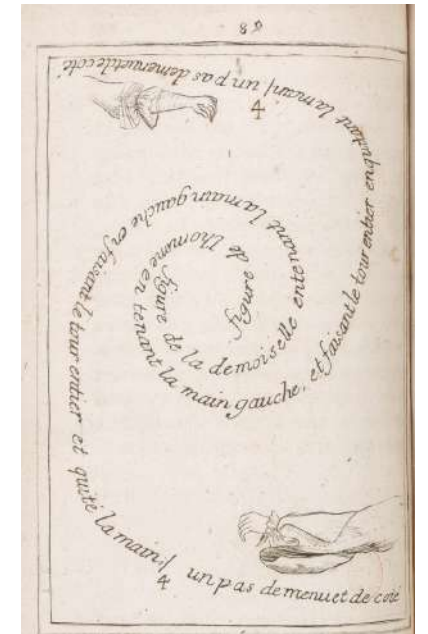 figure de lhomme en tenant la main gauche, et faisant le tour entier en quitant la main / un pas de menuet de coté
4
figure de la demoiselle en tenant la main gauche en faisant le tour entier et quité la main;/ un pas de menuet de coté
4